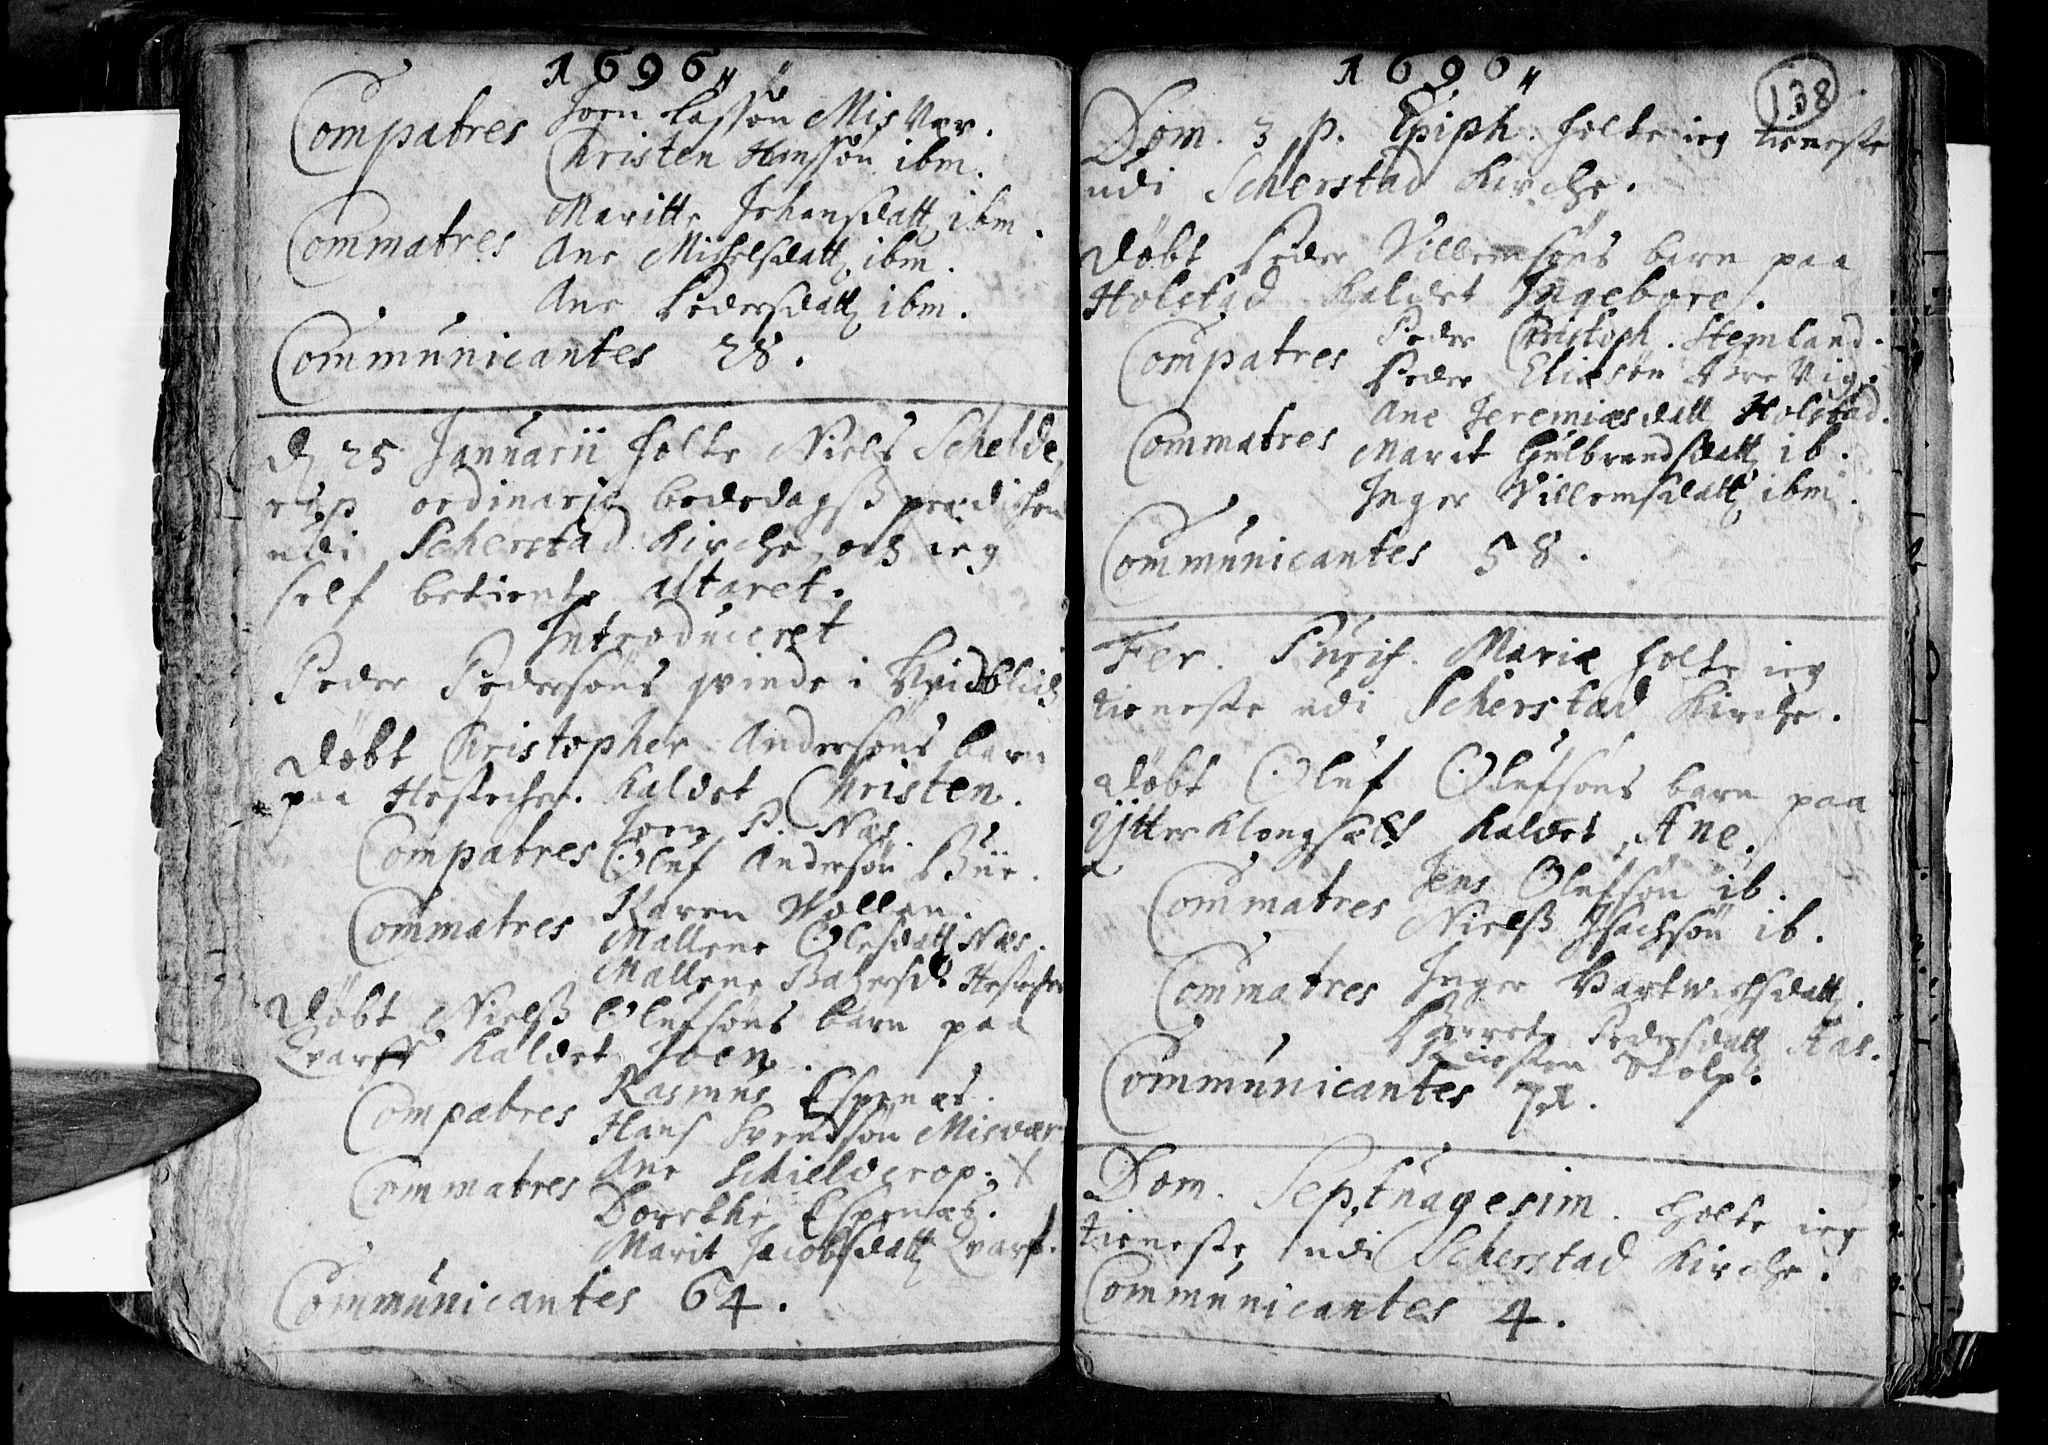 1696
Compatres Joen Lassøn Misvær.
Christen Hanssøn ibm.
Commatres Maritte Johansdatt ibm.
Ane Michelsdatt ibm.
Ane Pedersdatt ibm.
Communicantes 28.
d 25 Januarii holte Niels Schelde
rup ordinarie bededagsß prædichen
udi Scherstad Kirche, och ieg
self betiente altaret.
Introduceret
Peder Pedersøns qvinde i
Døbt Christopher Andersøns barn
paa kaldet Christen.
Compatres Joen P. Næs.
Oluf Andersøn
Commatres Karen Vollen.
Mallene Olesdatt Næs.
Mallene
Døbt Nielß Olufsøns barn paa
Qvarff kaldet Joen.
Compatres Rasmus Espenæs.
Hans Svendsøn Misvær
Commatres Ane Schielderop.
Dorrthe Espenæs.
Marit Jacobsdatt Qvarf.
Communicantes 64.
1696
138
Dom. 3 p. Epiph. holte ieg tieneste
udi Scherstad Kirche.
Døbt Peder Villemsøns barn paa
Holstad kaldet Ingebore.
Compatres Peder Christoph. Stemland.
Peder Eliæsøn Vig.
Commatres Ane Jeremiæsdatt Holstad.
Marit Gulbrandsdatt ib.
Inger Villemsdatt ibm.
Communicantes 58.
Fer. Purif. Mariæ holte ieg
tieneste udi Scherstad Kirche.
Døbt Oluf Olufsøns barn paa
Ytter Klongsæt kaldet Ane.
Commatres Jens Olufsøn ib.
Nielß Isachsøn ib.
Commatres Inger Hartwichsdatt.
Pedersdatt Aas.
Kirsten Stolp.
Communicantes
Dom. Septuagesim. holte ieg
tieneste udi Scherstad Kirche.
Communicantes 4.